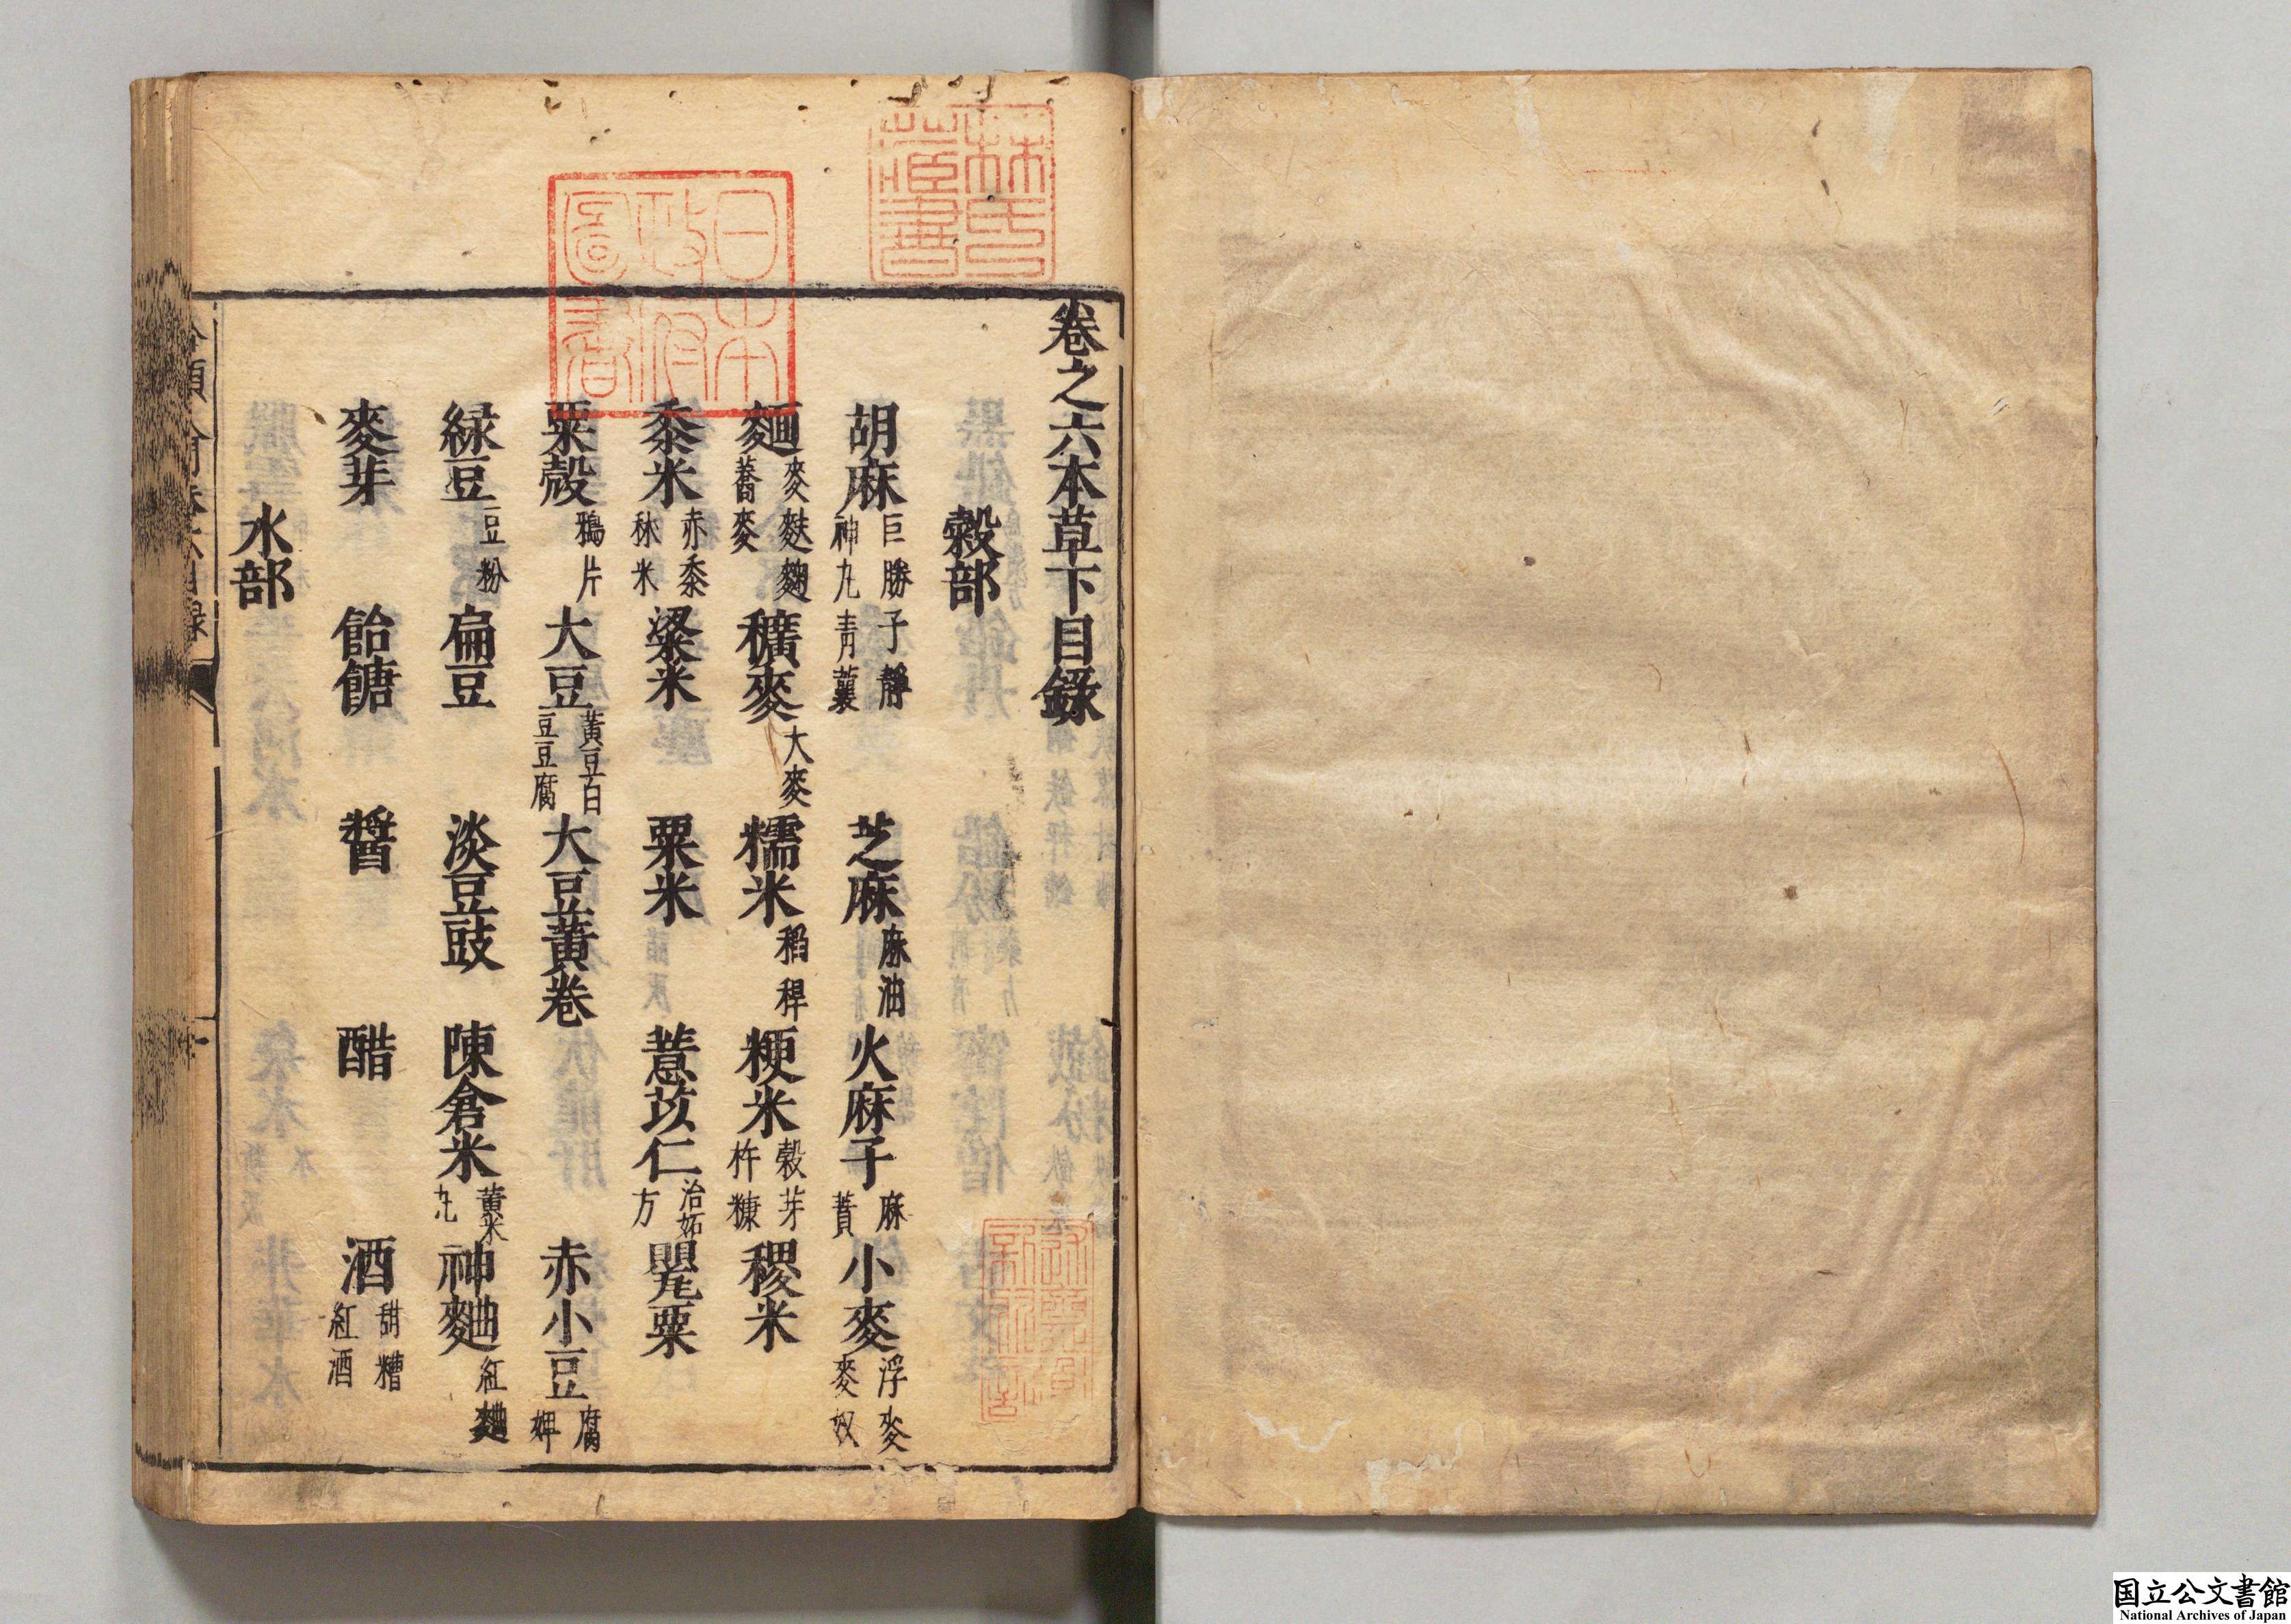 卷之六本草下目錄
穀部
胡麻 巨勝子靜神丸青蘘 芝麻 麻油 火麻子 麻蕡 小麥 浮麥麥奴
麵 麥麩麹蕎麥 穬麥 大麥 糯米 稻稈 粳米 穀芽杵糠 稷米
黍米 赤黍秫米 粱米 粟米 薏苡仁 治妬方 罌粟
粟殼 鴉片 大豆 黃豆白豆豆腐 大豆黃卷 赤小豆 腐婢
緑豆 豆粉 扁豆 淡豆豉 陳倉米 黃米丸 神麯 紅麯
麥芽 飴餹 醬 醋 酒 甜糟紅酒
水部
林氏藏書
日本政府圖書
国立公文書館
National Archives of Japan